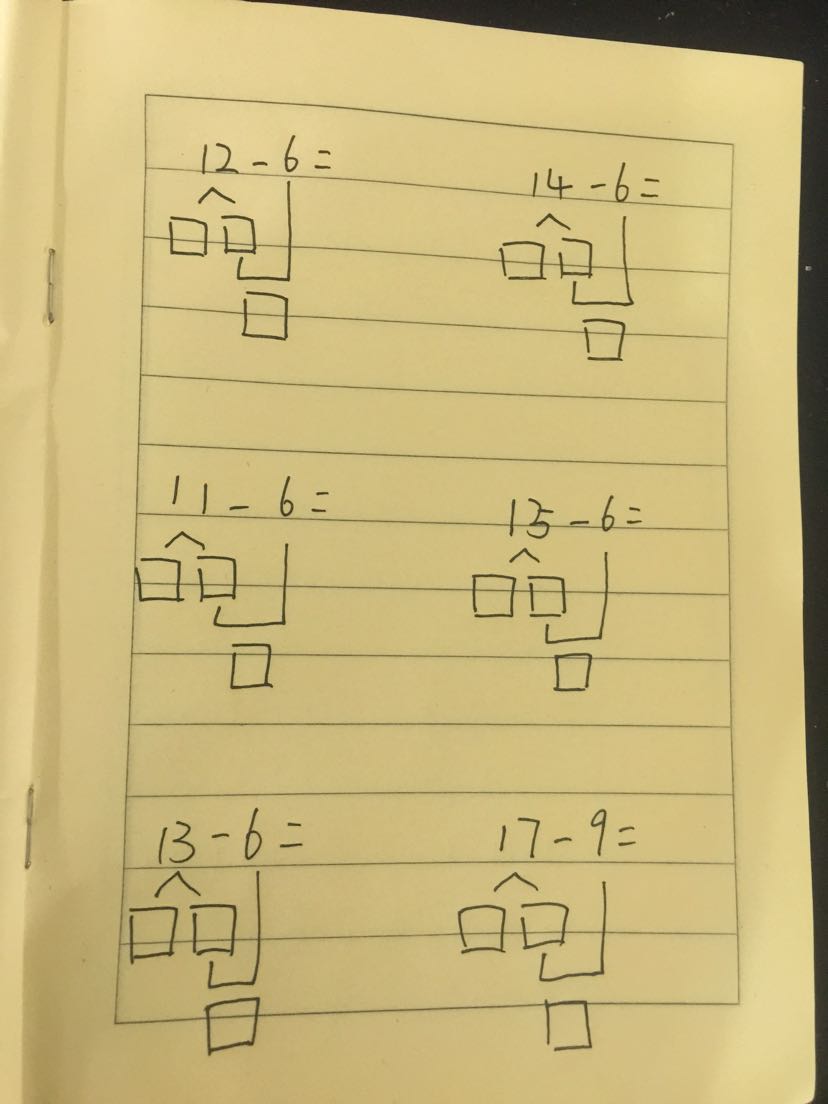 12-6=
14-6=
11-6=
15-6=
13-6=
17-9=